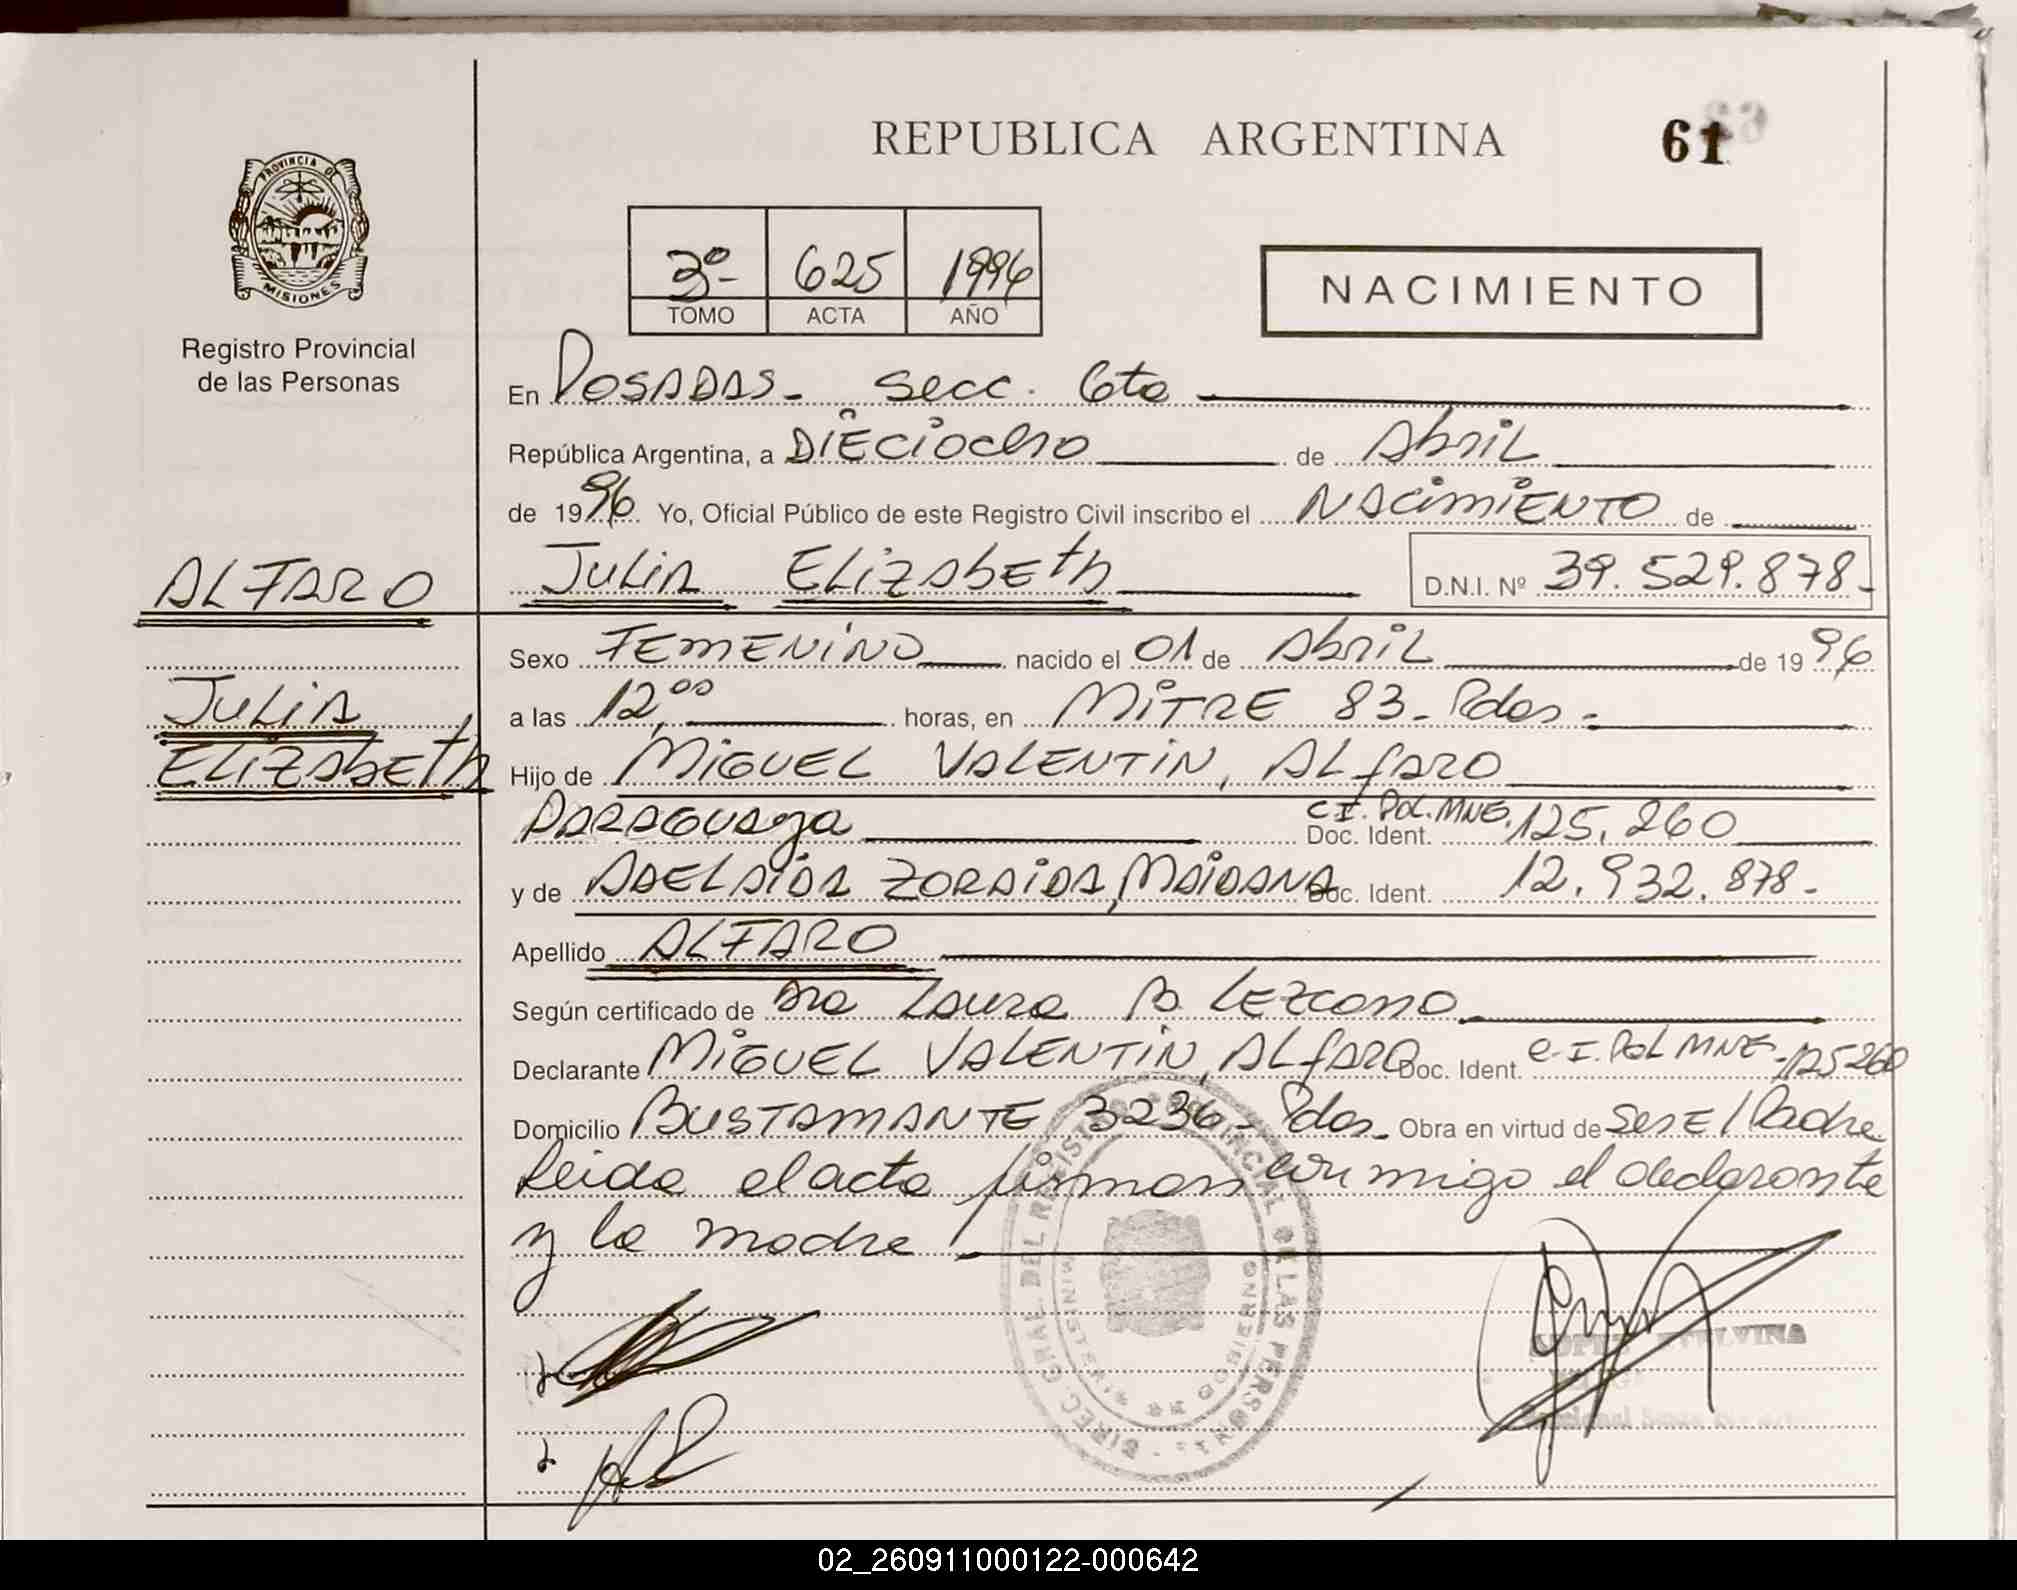 REPUBLICA ARGENTINA
61
63
PROVINCIA DE
MISIONES
Registro Provincial
de las Personas
3º- 625 1996
TOMO ACTA AÑO
NACIMIENTO
En POSADAS- secc. 6ta
República Argentina, a DiEciocho de Abril
de 1996 Yo, Oficial Público de este Registro Civil inscribo el NAcimiENTO de
ALFARO
JuLiA ELizAbETh D.N.I. Nº 39.529.878-
Sexo FEmENiNO nacido el 01 de Abril de 1996
JuLiA
a las 12,00 horas, en MiTRE 83- Pdas-
ELizAbETh
Hijo de MiGUEL VALENTiN, ALfARO
PARAGUAya C.I. Pol. MNES. Doc. Ident. 125.260
y de ADELAiDA ZORAiDA, MAiDANA Doc. Ident. 12.932.878-
Apellido ALFARO
Según certificado de Dra Laura B. LEzcano
Declarante MiGUEL VALENTiN, ALfARO Doc. Ident. C.I. Pol MNES- 125260
Domicilio BUSTAMANTE 3236- Pdas- Obra en virtud de ser El Padre
Leida el acta firman conmigo el declarante
y la madre
DIREC. GRAL. DEL REGISTRO PROVINCIAL DE LAS PERSONAS
MINISTERIO DE GOBIERNO
LOPEZ ETELVINA
02_260911000122-000642